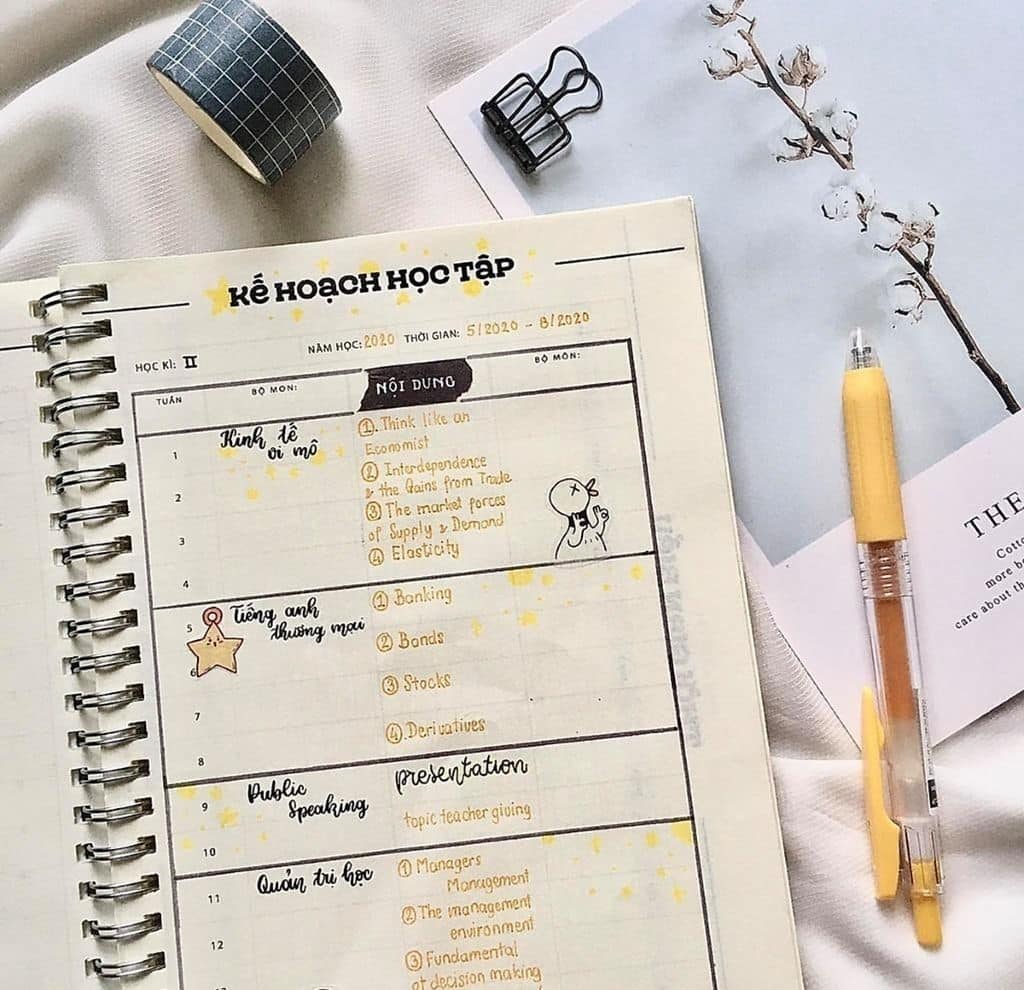 KẾ HOẠCH HỌC TẬP
NĂM HỌC: 2020 THỜI GIAN: 5/2020 - 8/2020
HỌC KÌ: II
TUẦN BỘ MÔN: NỘI DUNG BỘ MÔN:
1 Kinh tế
vi mô
①. Think like an
Economist
2
② Interdependence
& the Gains from Trade
3
③ The market forces
of Supply & Demand
④ Elasticity
4
5 Tiếng anh
thương mại
① Banking
6
② Bonds
7
③ Stocks
④. Derivatives
8
9 Public
Speaking
presentation
topic teacher giving
10
11 Quản trị học
① Managers
Management
12
② The management
environment
③ Fundamental
of decision making
THE
Cotto
more be
care about th